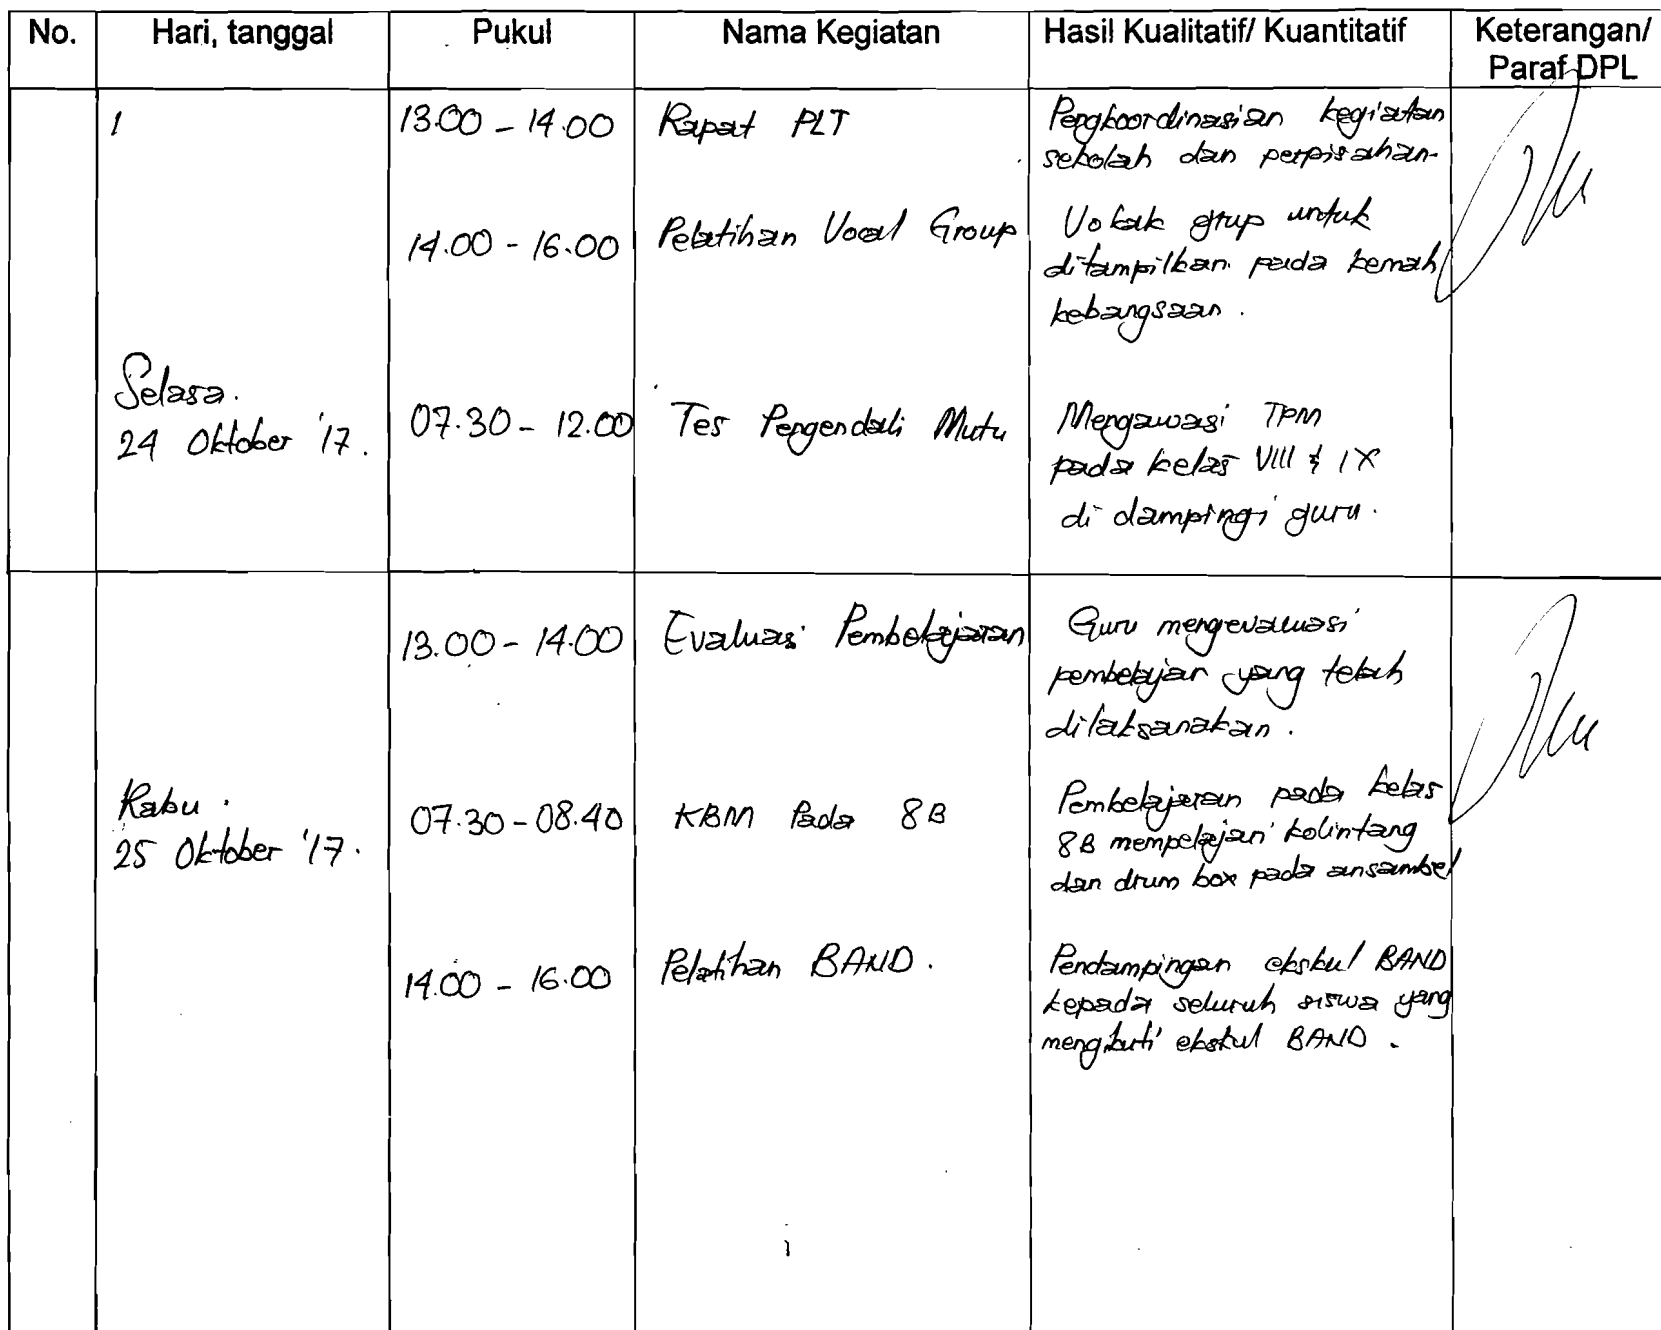 No. Hari, tanggal Pukul Nama Kegiatan Hasil Kualitatif/ Kuantitatif Keterangan/
Paraf DPL
1 13.00 - 14.00 Rapat PLT Pengkoordinasian kegiatan
sekolah dan perpisahan.
14.00 - 16.00 Pelatihan Vocal Group Vokak grup untuk
ditampilkan pada kemah
kebangsaan.
Selasa.
24 Oktober '17. 07.30 - 12.00 Tes Pengendali Mutu Mengawasi TPM
pada kelas VIII & IX
di dampingi guru.
13.00 - 14.00 Evaluasi Pembelajaran Guru mengevaluasi
pembelajar yang telah
dilaksanakan.
Rabu.
25 Oktober '17. 07.30 - 08.40 KBM Pada 8B Pembelajaran pada kelas
8B mempelajari kolintang
dan drum box pada ansambel
14.00 - 16.00 Pelatihan BAND. Pendampingan ekskul BAND
kepada seluruh siswa yang
mengikuti ekskul BAND.